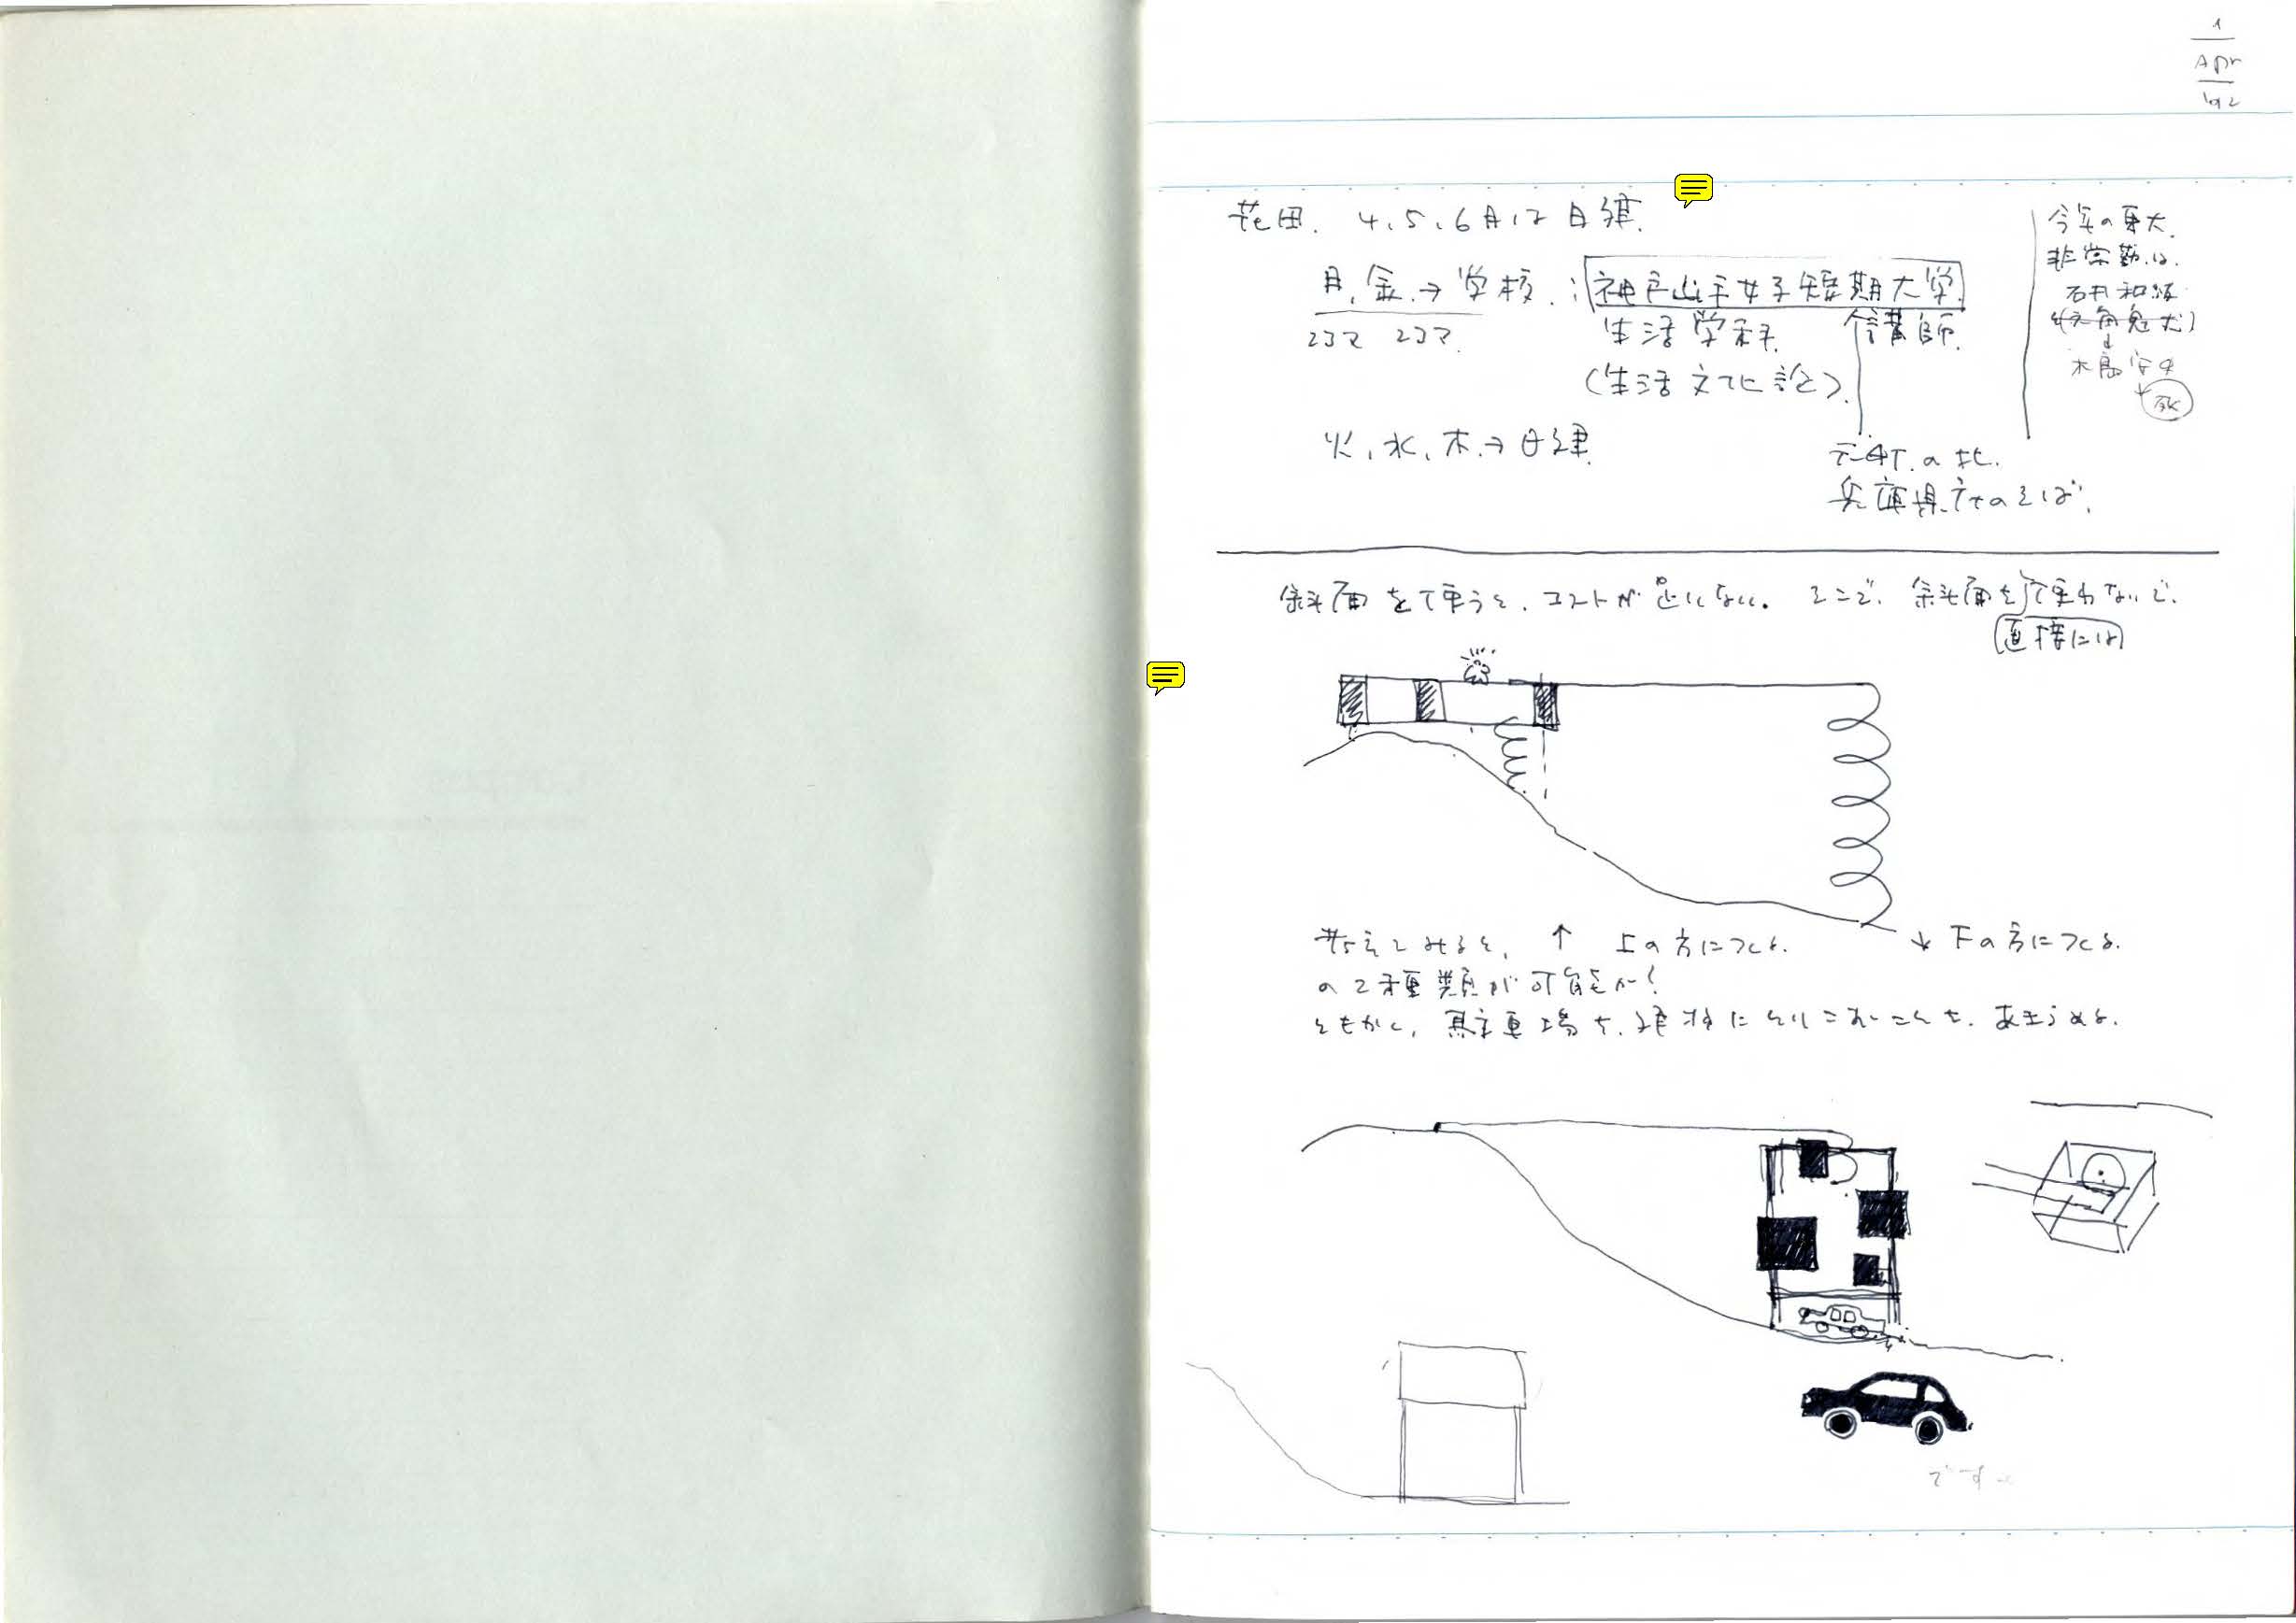 1
Apr
'92
花田. 4、5、6月は日建.
月、金.→学校.:神戸山手女子短期大学.
2コマ 2コマ.
生活学科. 講師.
(生活文化論).
火、水、木→日建.
元町.の北.
兵庫県庁のそば.
今年の東大.
非常勤は.
石井和紘
木島安史
死
斜面を使うと、コストが合はない. そこで、斜面を使わないで.
直接には
考えてみると、↑ 上の方につくる. ↓ 下の方につくる.
の2種類が可能か!
ともかく、駐車場を、建物にとりこむことを、あきらめる.
です